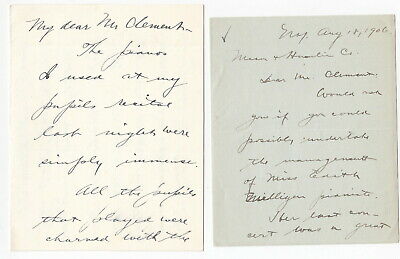 My dear Mr Clement -
The pianos
I used at my
pupils recital
last night were
simply immense.
All the pupils
that played were
charmed with the
Aug 18, 1906
Mason & Hamlin Co.
Dear Mr. Clement.
Would not
you if you could
possibly undertake
the management
of Miss Edith
Milligan pianist.
Her last con-
cert was a great